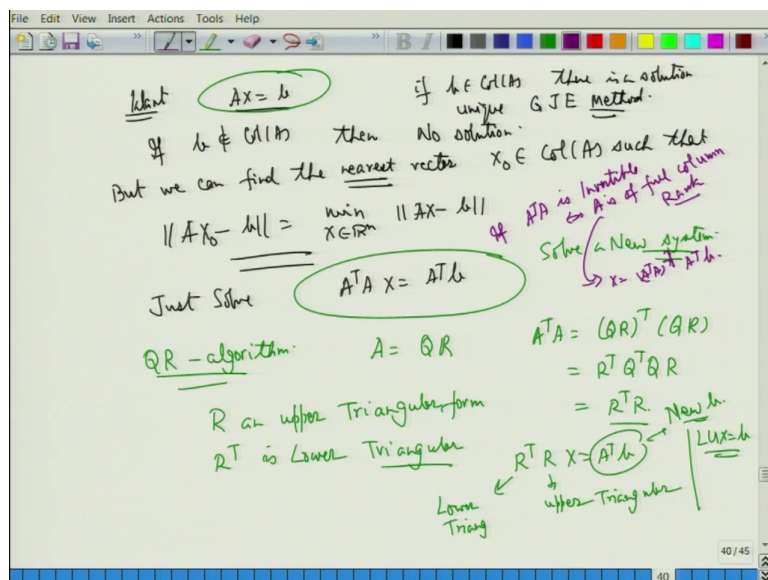 File Edit View Insert Actions Tools Help
Want Ax = b if b ∈ Col(A) there is a solution
unique GJE Method.
If b ∉ Col(A) then No solution.
But we can find the nearest vector x₀ ∈ Col(A) such that
||Ax₀ - b|| = min ||Ax - b||
x ∈ ℝⁿ
If AᵀA is Invertible
↔ A is of full column
Rank
Solve a New system.
→ x = (AᵀA)⁻¹ Aᵀb.
Just Solve AᵀA x = Aᵀb
QR - algorithm. A = QR AᵀA = (QR)ᵀ (QR)
= Rᵀ Qᵀ Q R
R an upper Triangular form = RᵀR.
Rᵀ is Lower Triangular
New b.
RᵀR x = Aᵀb
LUx = b
Lower
Triang
upper Triangular
40 / 45
40